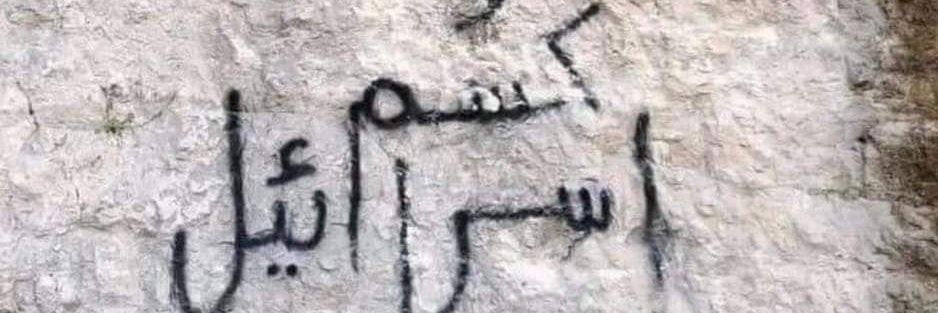 كسم
اسرائيل